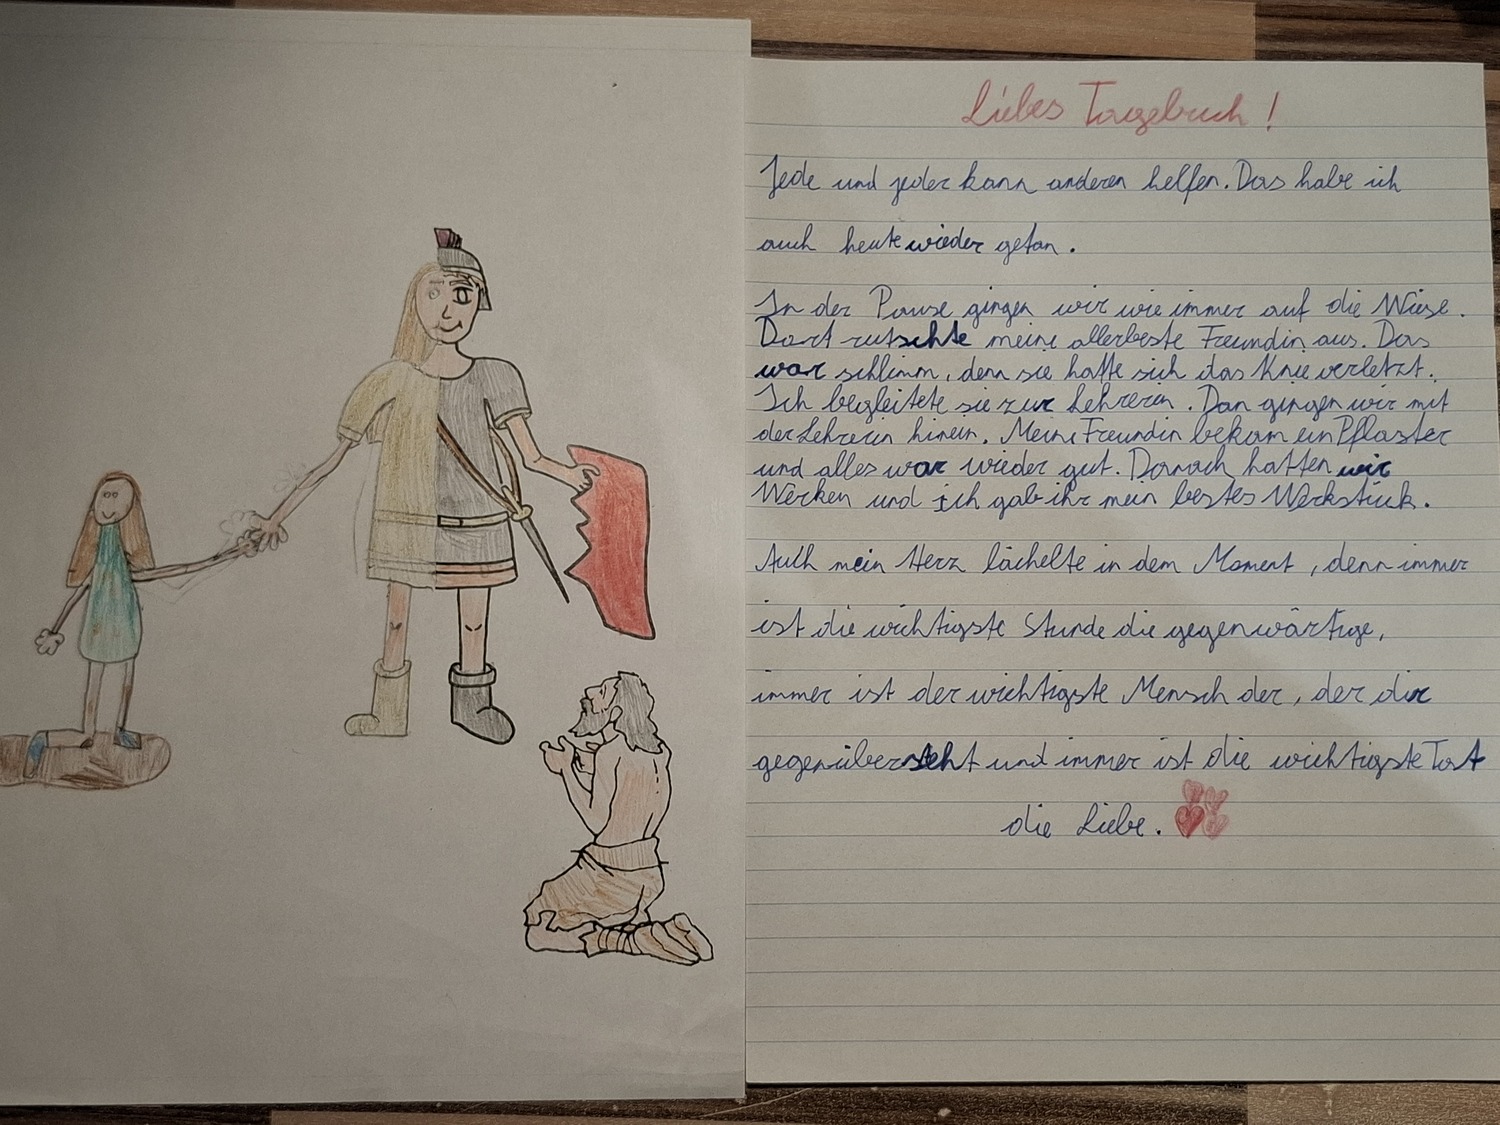 Liebes Tagebuch!
Jede und jeder kann anderen helfen. Das habe ich
auch heute wieder getan.
In der Pause gingen wir wie immer auf die Wiese.
Dort rutschte meine allerbeste Freundin aus. Das
war schlimm, denn sie hatte sich das Knie verletzt.
Ich begleitete sie zur Lehrerin. Dan gingen wir mit
der Lehrerin hinein. Meine Freundin bekam ein Pflaster
und alles war wieder gut. Danach hatten wir
Werken und ich gab ihr mein bestes Werkstück.
Auch mein Herz lächelte in dem Moment, denn immer
ist die wichtigste Stunde die gegenwärtige,
immer ist der wichtigste Mensch der, der dir
gegenübersteht und immer ist die wichtigste Tat
die Liebe.